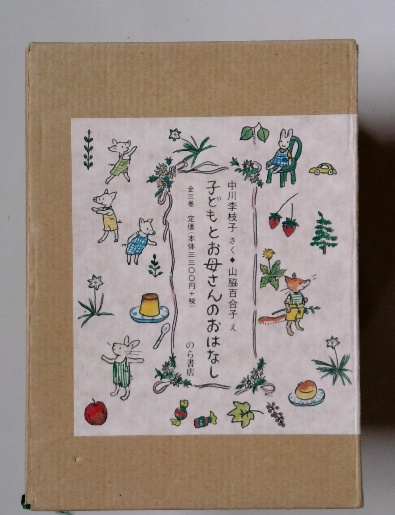 中川李枝子 さく ◆ 山脇百合子 え
子どもとお母さんのおはなし
全三巻 定価(本体三三〇〇円+税)
のら書店